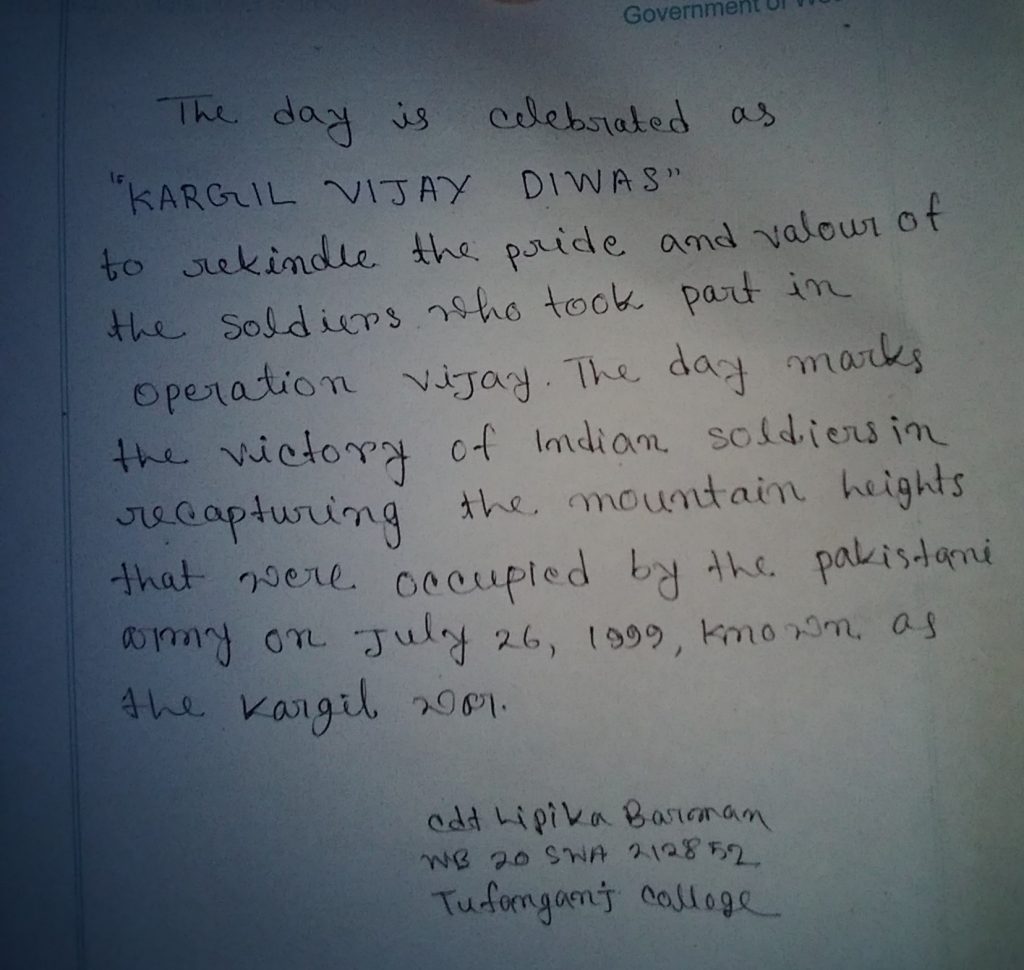 Government of We
The day is celebrated as
"KARGIL VIJAY DIWAS"
to rekindle the pride and valour of
the soldiers who took part in
operation vijay. The day marks
the victory of Indian soldiers in
recapturing the mountain heights
that were occupied by the pakistani
army on July 26, 1999, known as
the Kargil war.
cdt Lipika Barman
WB 20 SWA 212852
Tufanganj College